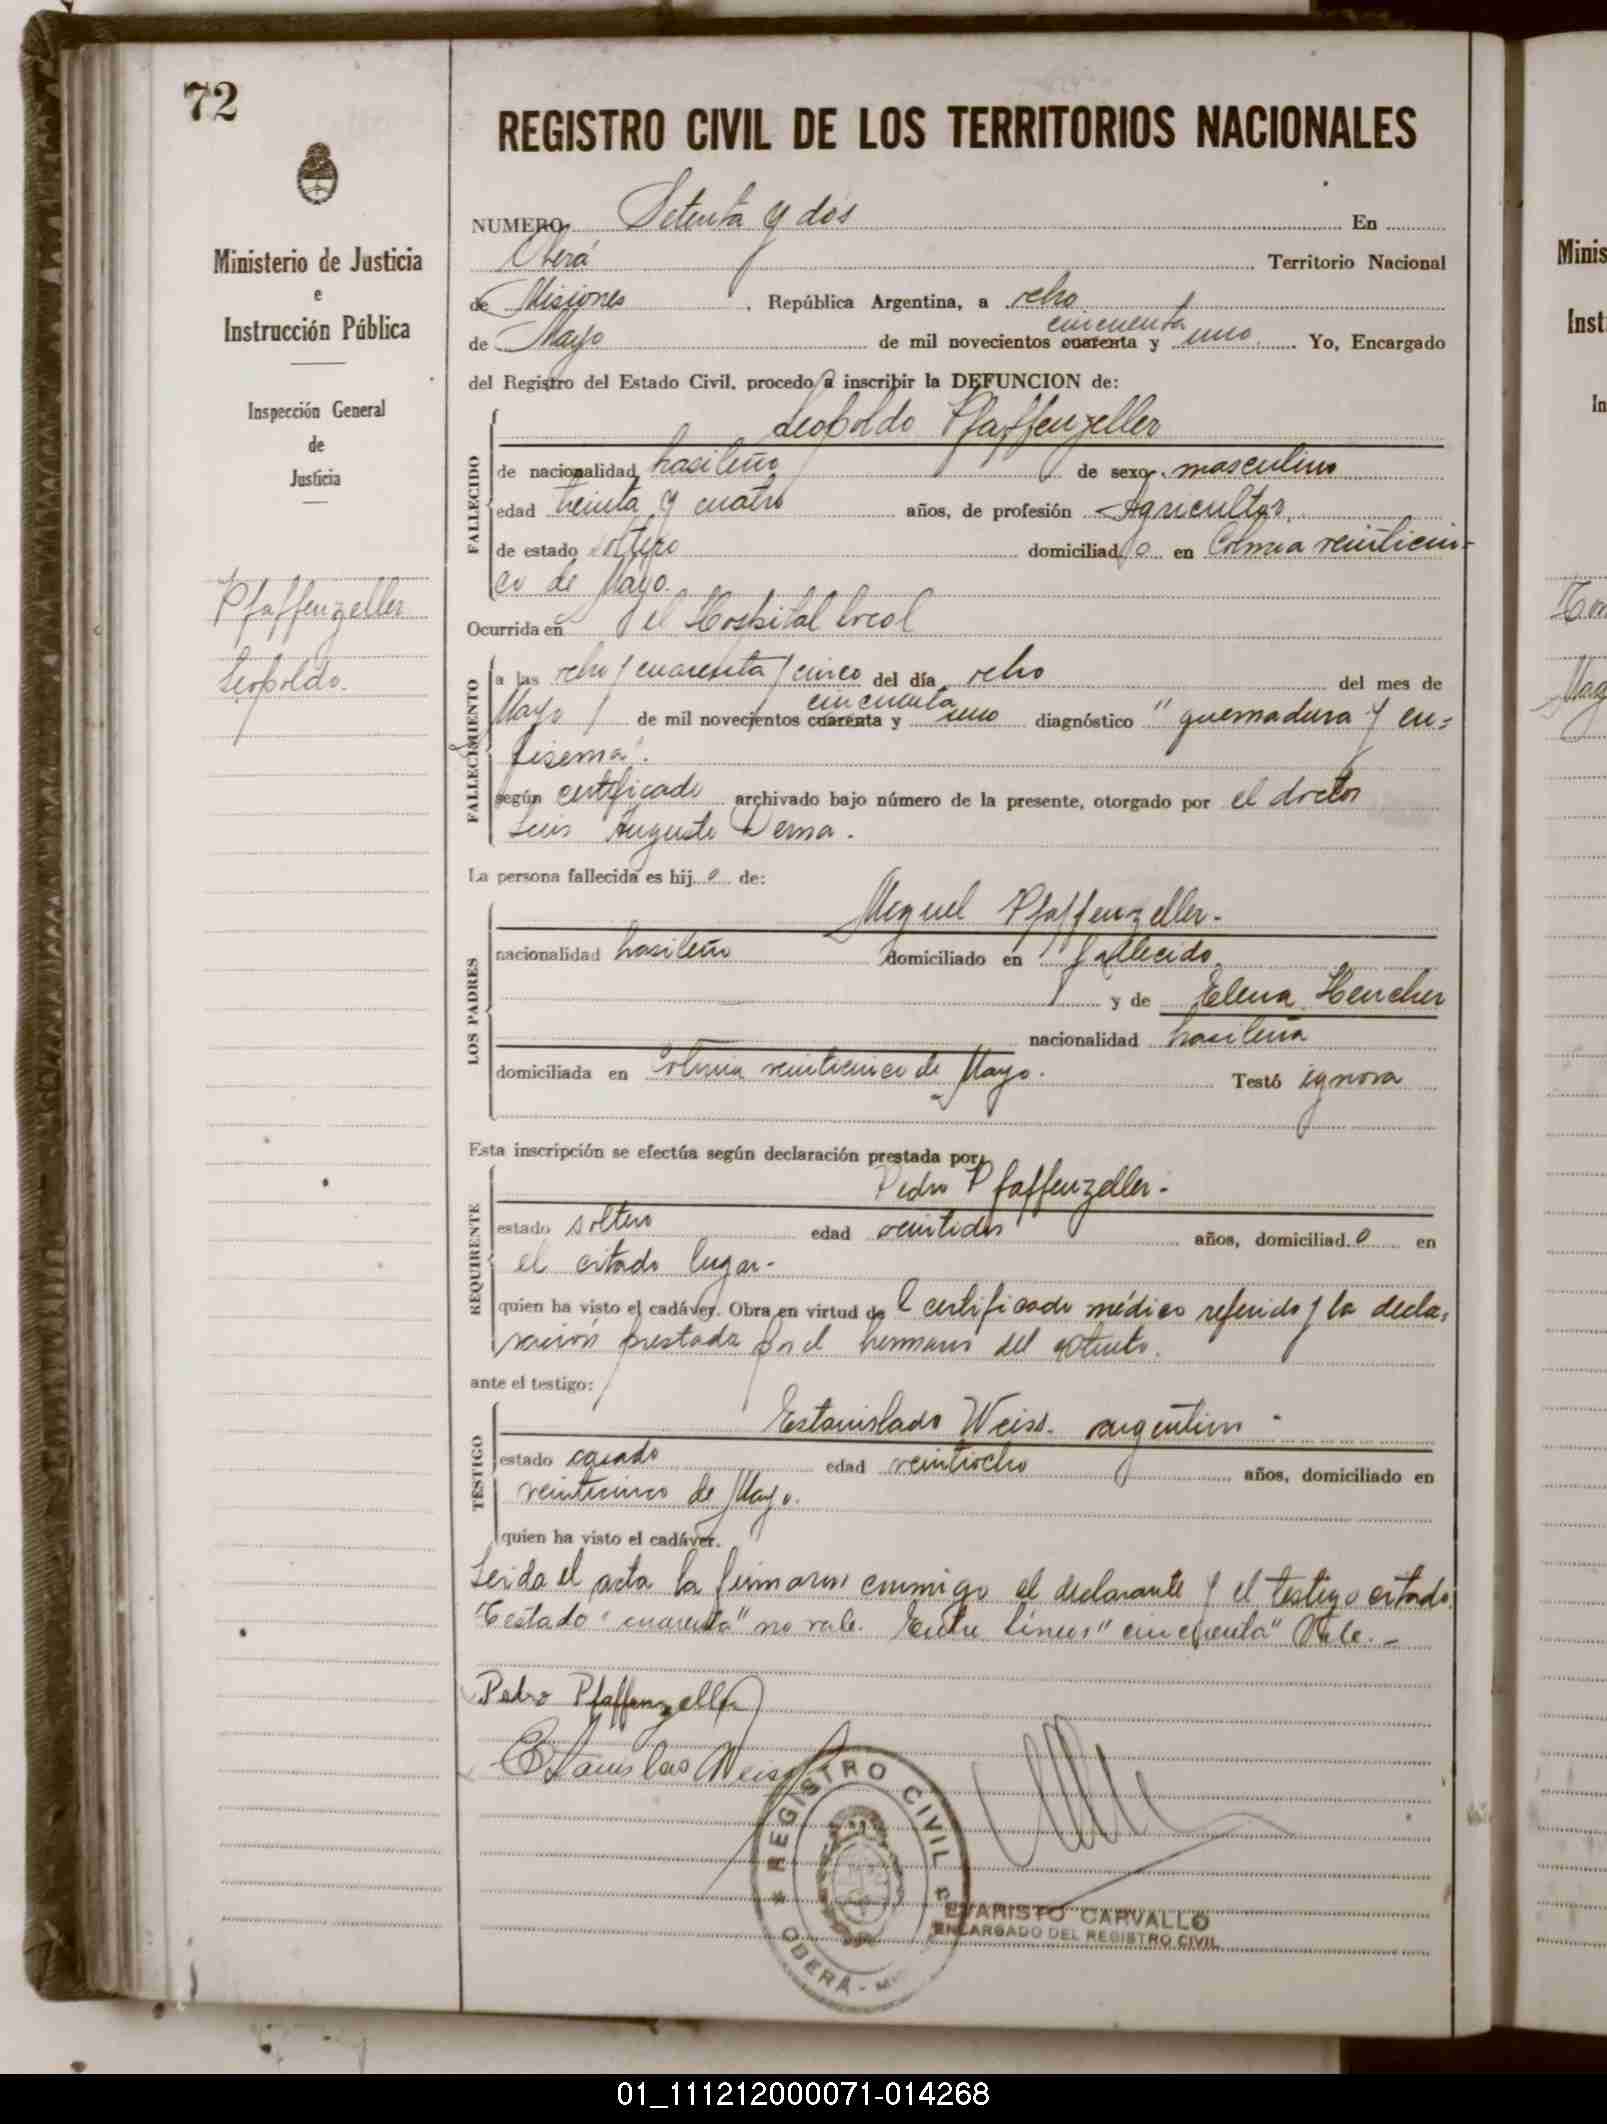 72
REGISTRO CIVIL DE LOS TERRITORIOS NACIONALES
Ministerio de Justicia
e
Instrucción Pública
Inspección General
de
Justicia
Pfaffenzeller
Leopoldo.
NUMERO Setenta y dos En
Oberá Territorio Nacional
de Misiones, República Argentina, a ocho
cincuenta
de Mayo de mil novecientos cuarenta y uno. Yo, Encargado
del Registro del Estado Civil, procedo a inscribir la DEFUNCION de:
Leopoldo Pfaffenzeller
FALLECIDO
de nacionalidad brasileño de sexo masculino
edad treinta y cuatro años, de profesión Agricultor,
de estado soltero domiciliado en Colonia veinticin-
co de Mayo.
Ocurrida en el Hospital local
FALLECIMIENTO
a las ocho y cuarenta y cinco del día ocho del mes de
cincuenta
Mayo de mil novecientos cuarenta y uno diagnóstico "quemadura y en=
fisema".
según certificado archivado bajo número de la presente, otorgado por el doctor
Luis Augusto Derna.
La persona fallecida es hijo de:
LOS PADRES
Miguel Pfaffenzeller.
nacionalidad brasileño domiciliado en fallecido
y de Elena Hencher
nacionalidad brasileña
domiciliada en Colonia veinticinco de Mayo. Testó ignora
Esta inscripción se efectúa según declaración prestada por:
REQUIRENTE
Pedro Pfaffenzeller.-
estado soltero edad veintidos años, domiciliado en
el citado lugar.-
quien ha visto el cadáver. Obra en virtud del certificado médico referido y la decla=
ración prestada por el hermano del extinto.
ante el testigo:
TESTIGO
Estanislado Weiss. argentino -
estado casado edad veintiocho años, domiciliado en
veinticinco de Mayo.
quien ha visto el cadáver.
Leida el acta la firmaron conmigo el declarante y el testigo citado.
Testado "cuarenta" no vale. Entre líneas "cincuenta" Vale.-
Pedro Pfaffenzeller
Estanislao Weiss
REGISTRO CIVIL
OBERÁ -
EVARISTO CARVALLO
ENCARGADO DEL REGISTRO CIVIL
Minis
Inst
In
01_111212000071-014268